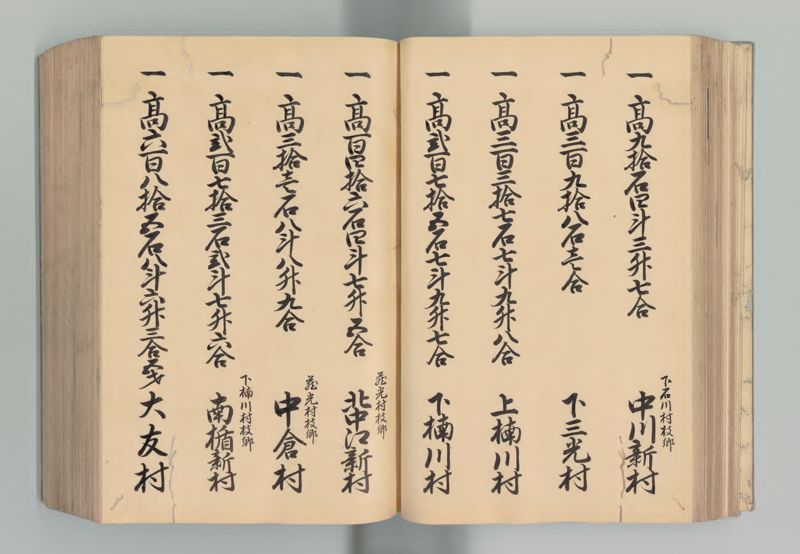 一 高九拾石四斗三升七合
下石川村枝郷
中川新村
一 高三百九拾八石壱合
下三光村
一 高三百三拾七石七斗九升八合
上楠川村
一 高弐百七拾五石七斗九升七合
下楠川村
一 高百四拾六石四斗七升五合
蔵光村枝郷
北中江新村
一 高三拾壱石八斗八升九合
蔵光村枝郷
中倉村
一 高弐百七拾三石弐斗七升六合
下楠川村枝郷
南楯新村
一 高六百八拾五石八斗六升三合
大友村